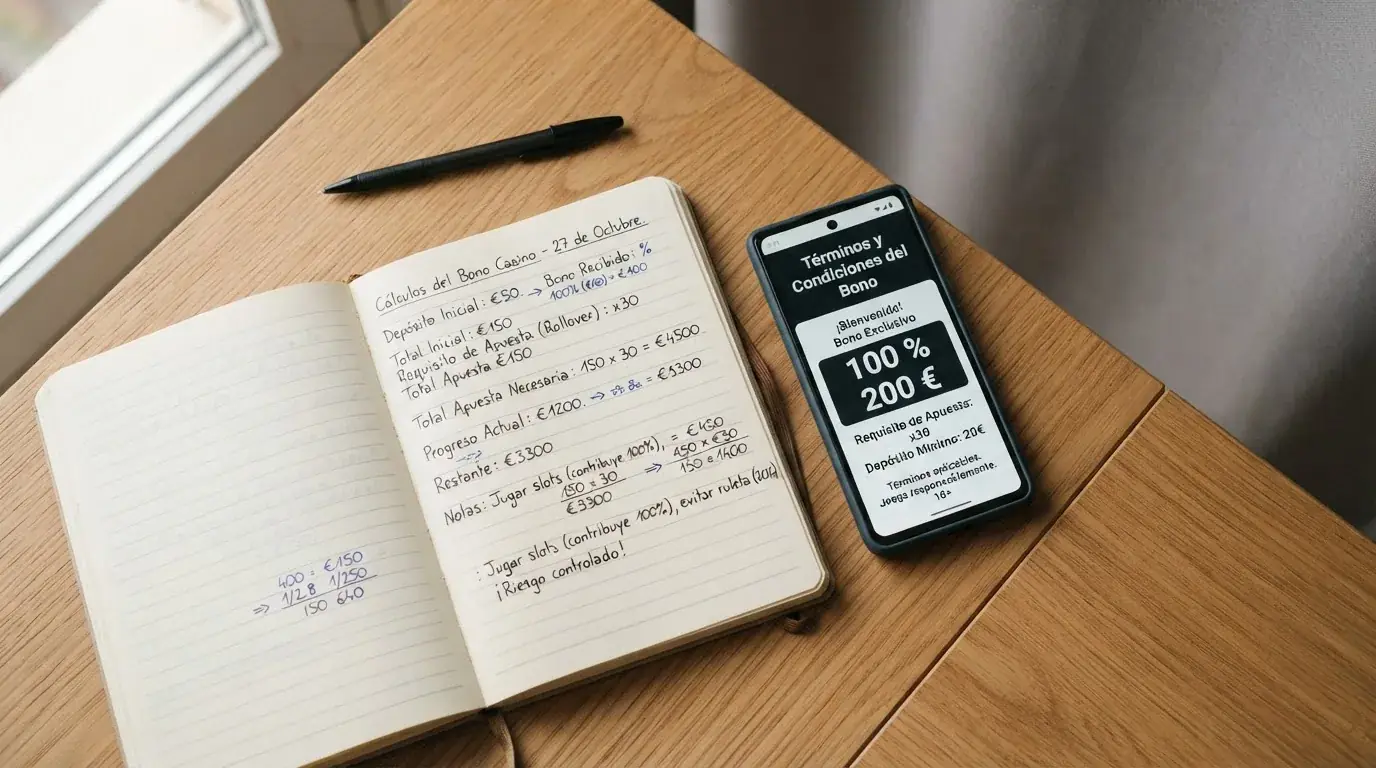 Cálculos del Bono Casino - 27 de Octubre.
Depósito Inicial: €50. → Bono Recibido: %
100% = €100
Total Inicial: €150
Requisito de Apuesta (Rollover): x30
Total Apuesta €150
Total Apuesta Necesaria: 150 x 30 = €4500
Progreso Actual: €1200. → = €3300
Restante: €3300
Notas: Jugar slots (contribuye 100%), = €450
150 x 30 ⇒ 450 x €30
€3300 150 = 1400
: Jugar slots (contribuye 100%), evitar ruleta
¡Riesgo controlado!
400 = €150
⇒ 1/28 1/250
150 640
Términos y
Condiciones del
Bono
¡Bienvenido!
Bono Exclusivo
100 %
200 €
Requisito de Apuesta:
x30
Depósito Mínimo: 20€
Términos aplicables.
Juega responsablemente.
18+